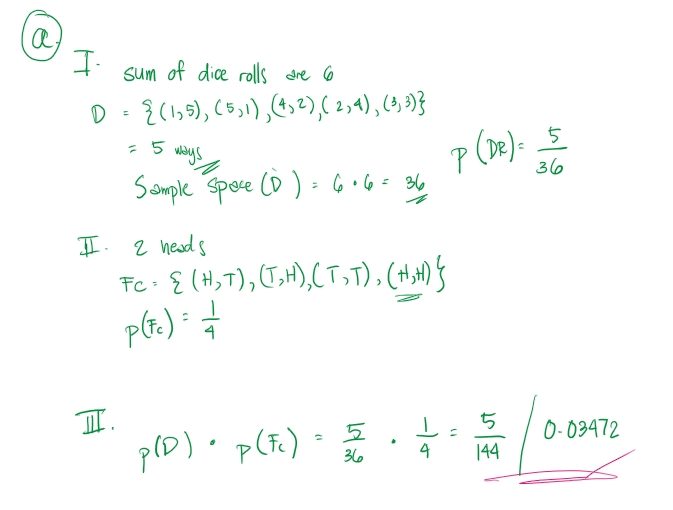 a.
I. sum of dice rolls are 6
D = {(1,5), (5,1), (4,2), (2,4), (3,3)}
= 5 ways
Sample Space (D) = 6 · 6 = 36
P(DR) = 5/36
II. 2 heads
Fc = {(H,T), (T,H), (T,T), (H,H)}
P(Fc) = 1/4
III. p(D) · p(Fc) = 5/36 · 1/4 = 5/144 / 0.03472